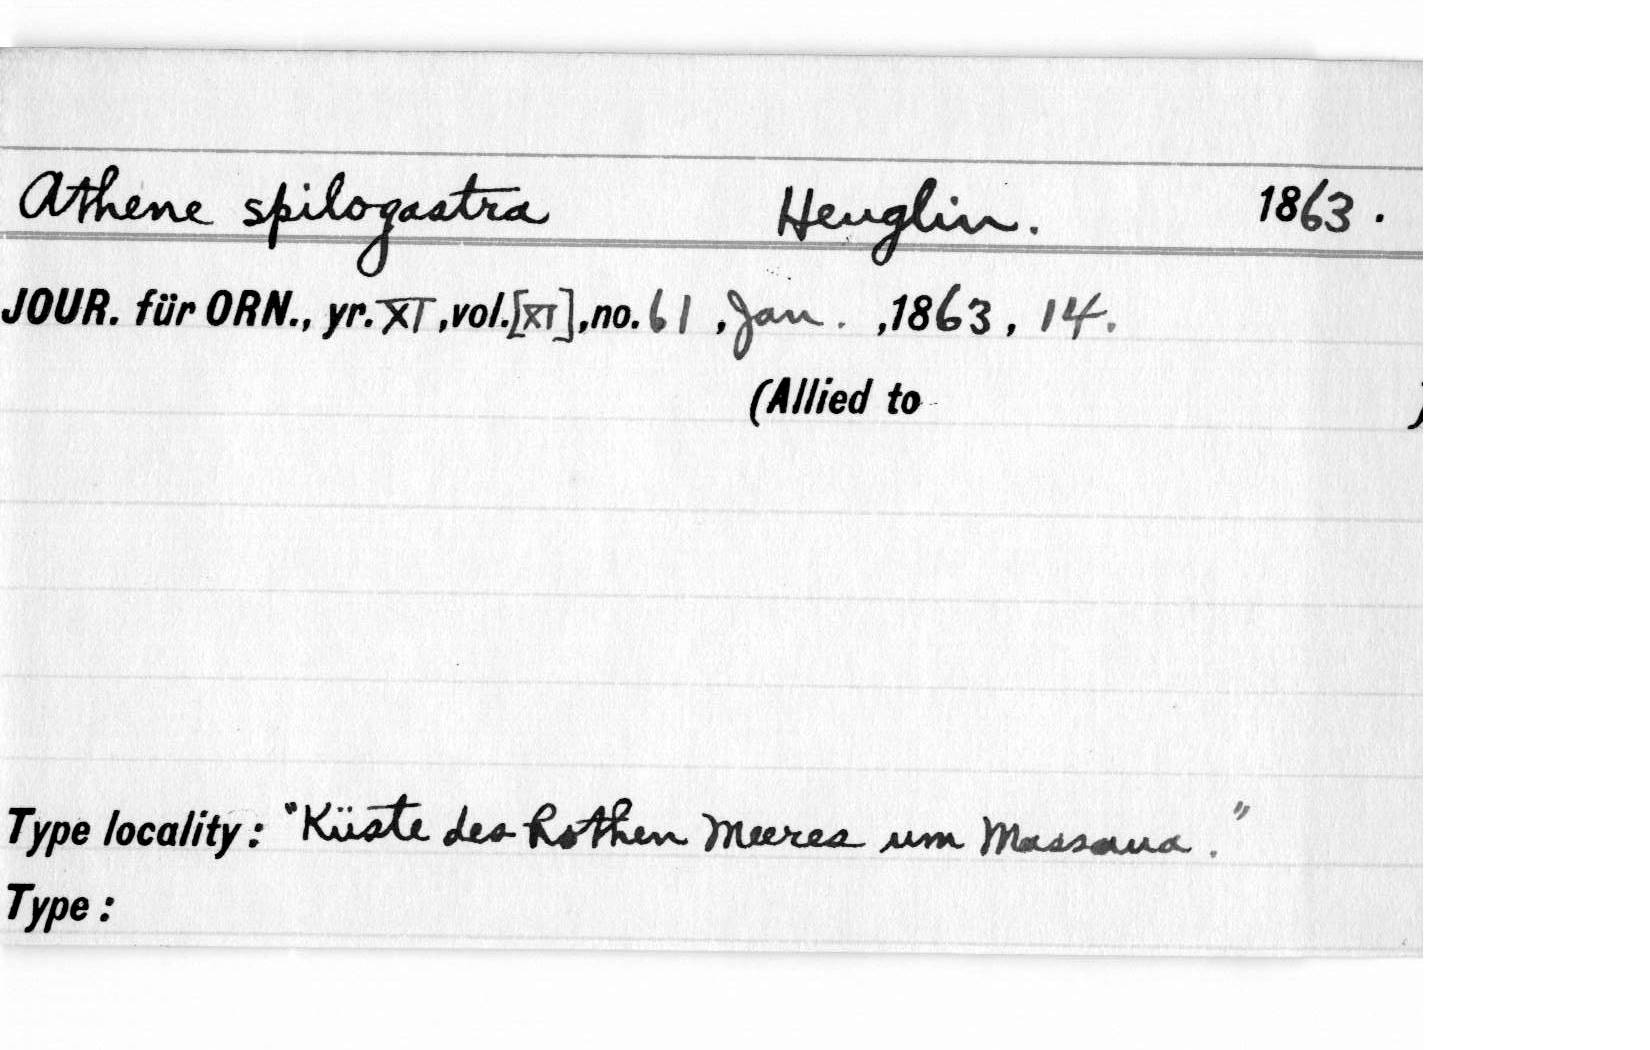 Athene spilogastra Heuglin. 1863.
JOUR. für ORN., yr. XI, vol. [XI], no. 61, Jan., 1863, 14.
(Allied to )
Type locality: "Küste des Rothen Meeres um Massaua."
Type: